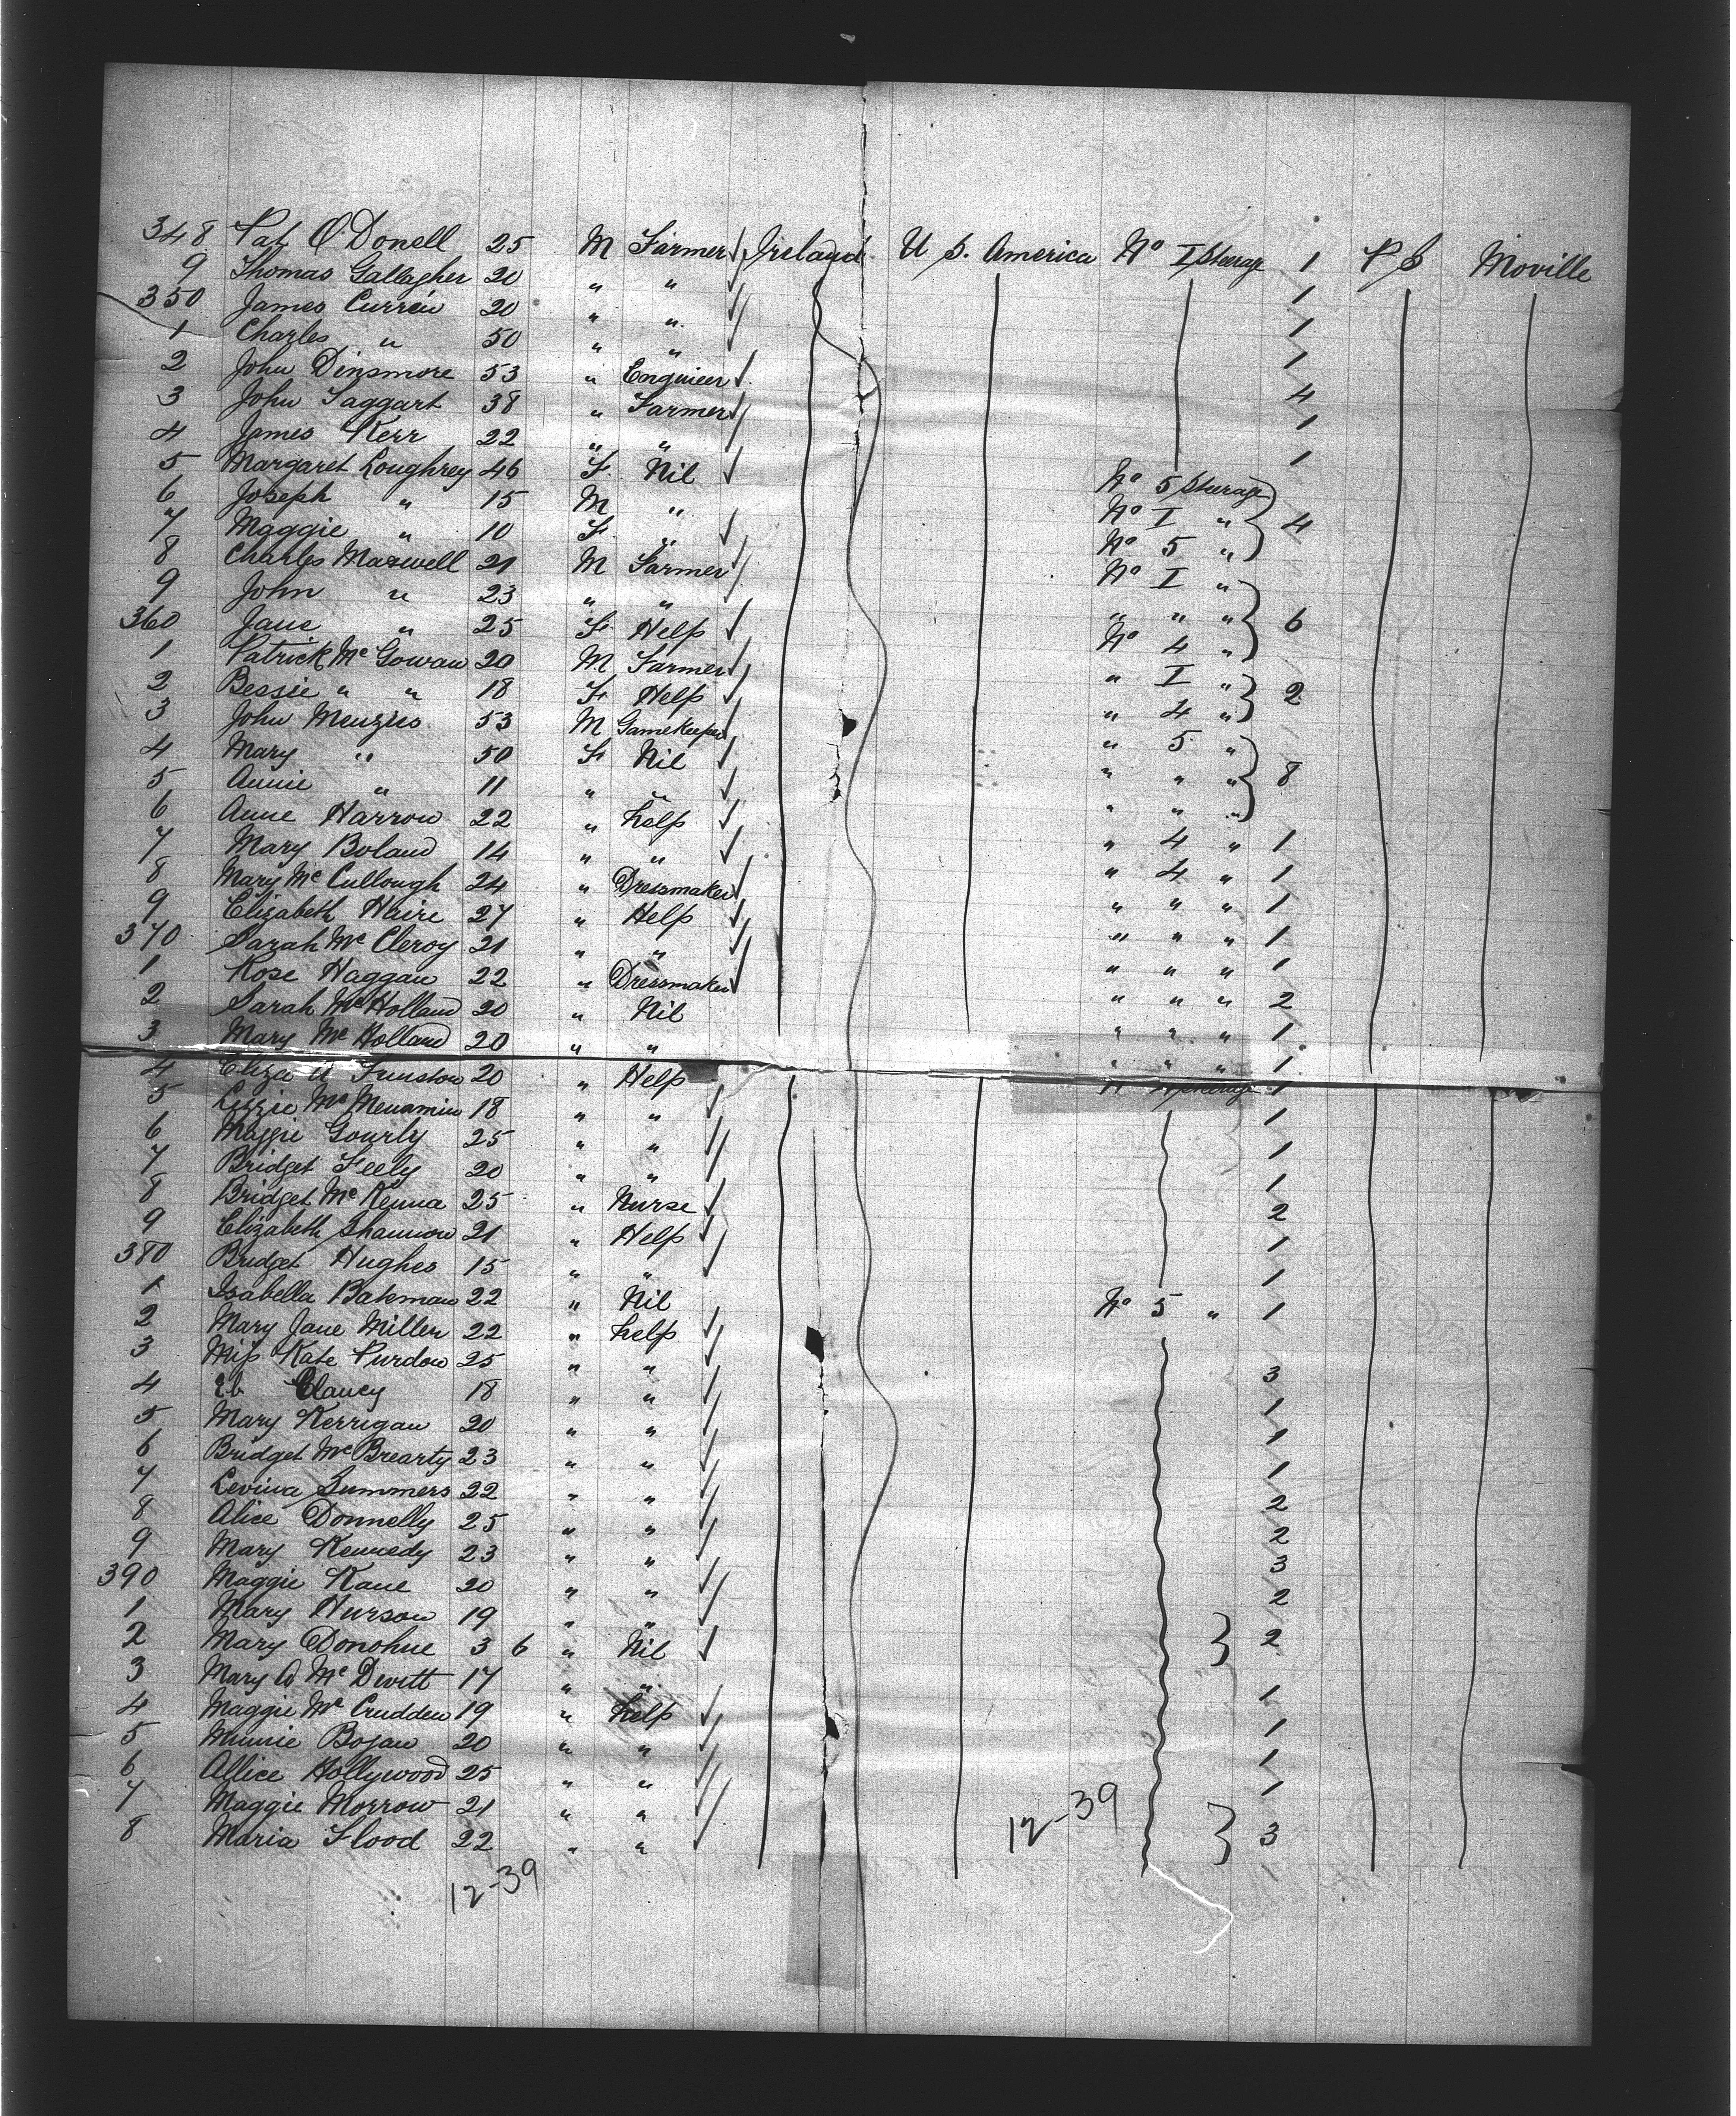 348 Pat O'Donell 25 M Farmer Ireland U S. America No I Steerage 1 P S Moville
9 Thomas Gallagher 20 " " 1
350 James Curren 20 " " 1
1 Charles " 50 " " 1
2 John Dinsmore 53 " Engineer 4
3 John Taggart 38 " Farmer 1
4 James Kerr 22 " " 1
5 Margaret Loughrey 46 F. Nil No 5 Steerage
6 Joseph " 15 M " No I " 4
7 Maggie " 10 F. " No 5 "
8 Charles Maxwell 21 M Farmer No I "
9 John " 23 " " " " " 6
360 Jane " 25 F. Help No 4 "
1 Patrick Mc Gowan 20 M Farmer " I "
2 Bessie " " 18 F. Help " 4 " 2
3 John Menzies 53 M Gamekeeper " 5 "
4 Mary " 50 F Nil " " " 8
5 Annie " 11 " " " " "
6 Anne Harrow 22 " help " 4 " 1
7 Mary Boland 14 " " " 4 " 1
8 Mary Mc Cullough 24 " Dressmaker " " " 1
9 Elizabeth Haire 27 " Help " " " 1
370 Sarah Mc Cleroy 21 " " " " " 1
1 Rose Haggan 22 " Dressmaker " " " 2
2 Sarah Mc Holland 20 " Nil " " " 1
3 Mary Mc Holland 20 " " " " " 1
4 Eliza A Funston 20 " Help Steerage 1
5 Lizzie Mc Menamin 18 " " 1
6 Maggie Gourly 25 " " 1
7 Bridget Feely 20 " " 1
8 Bridget Mc Kenna 25 " Nurse 2
9 Elizabeth Shannon 21 " Help 1
380 Bridget Hughes 15 " " 1
1 Isabella Bateman 22 " Nil No 5 " 1
2 Mary Jane Miller 22 " help
3 Miss Kate Purdon 25 " " 3
4 Clancy 18 " " 1
5 Mary Kerrigan 20 " " 1
6 Bridget Mc Brearty 23 " " 1
7 Levina Summers 22 " " 2
8 Alice Donnelly 25 " " 2
9 Mary Kennedy 23 " " 3
390 Maggie Kane 20 " " 2
1 Mary Hurson 19 " "
2 Mary Donohue 3 6 " Nil 2
3 Mary A Mc Devitt 17 " " 1
4 Maggie Mc Crudden 19 " help 1
5 Minnie Bogan 20 " " 1
6 Allice Hollywood 25 " " 1
7 Maggie Morrow 21 " "
8 Maria Flood 22 " " 3
12-39
12-39
1